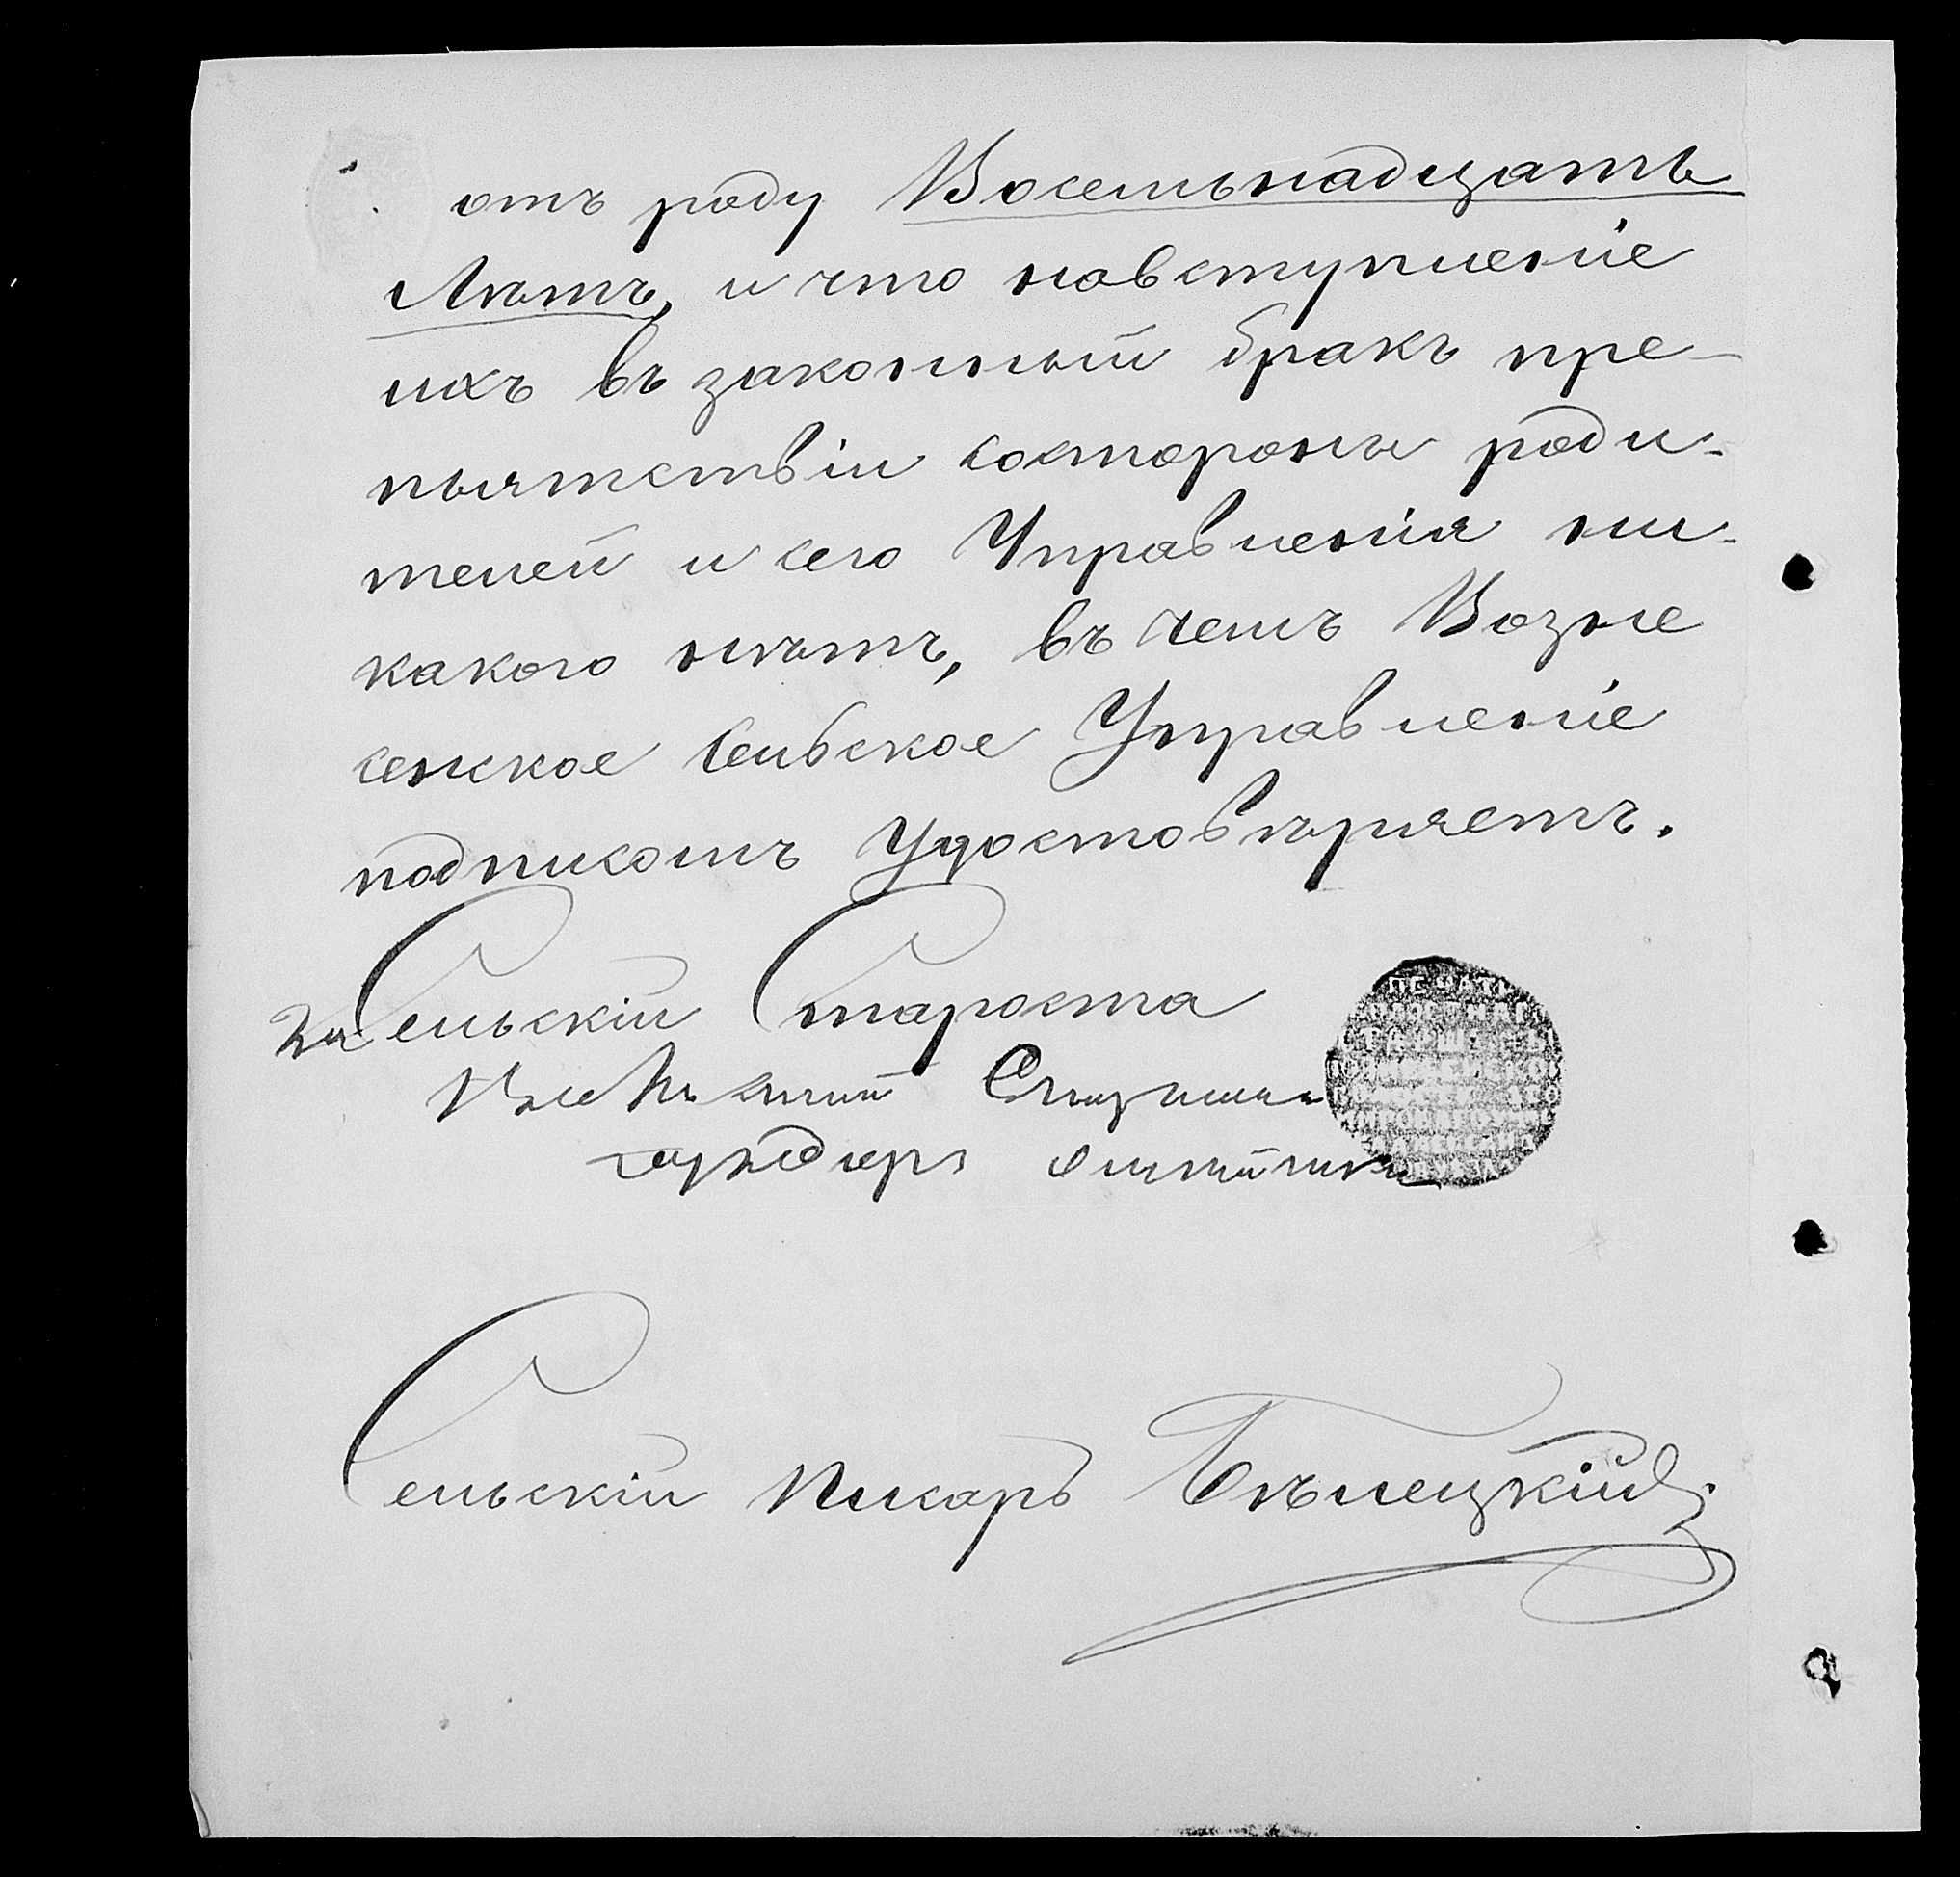 отъ роду Восемьнадцать
Лѣтъ, и что навступленіе
ихъ въ законный бракъ пре-
пятствіи состороны роди-
телей и сего Управленія ни-
какого нѣтъ, въ чемъ Возне
сенское Сельское Управленіе
подписомъ Удостовѣряетъ.
За Сельскій Староста
Сельскій Писарь Бѣлецкій
ПЕЧАТЬ